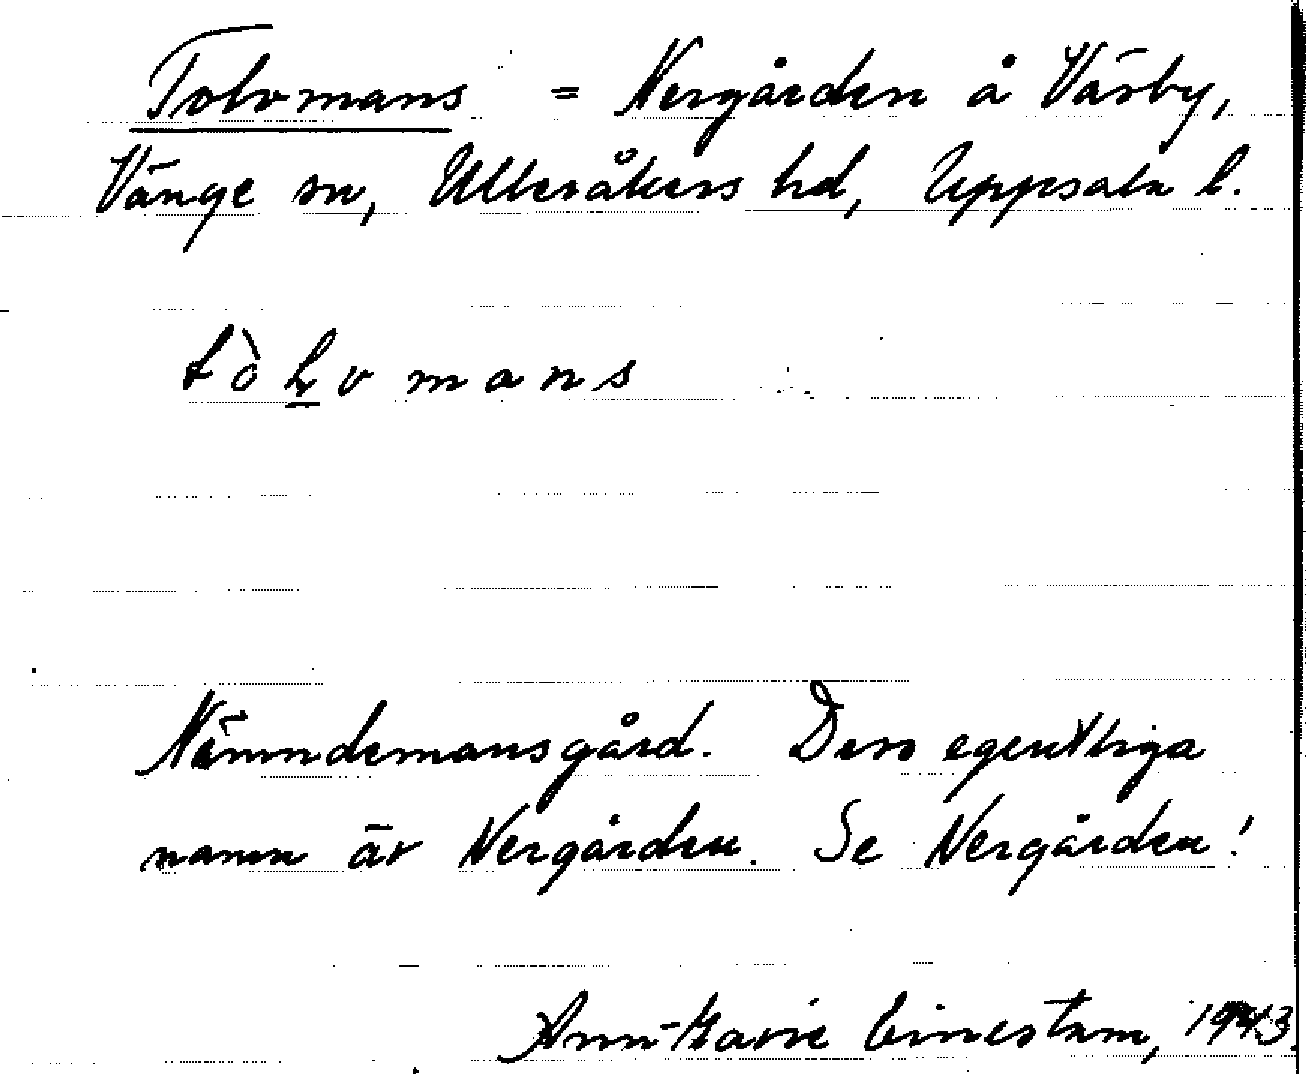 Tolvmans = Nergården å Väsby,
Vänge sn, Ulleråkers hd, Uppsala l.
tòl̠vmans
Nämndemansgård. Dess egentliga
namn är Nergården. Se Nergården!
Ann-Marie 1943.